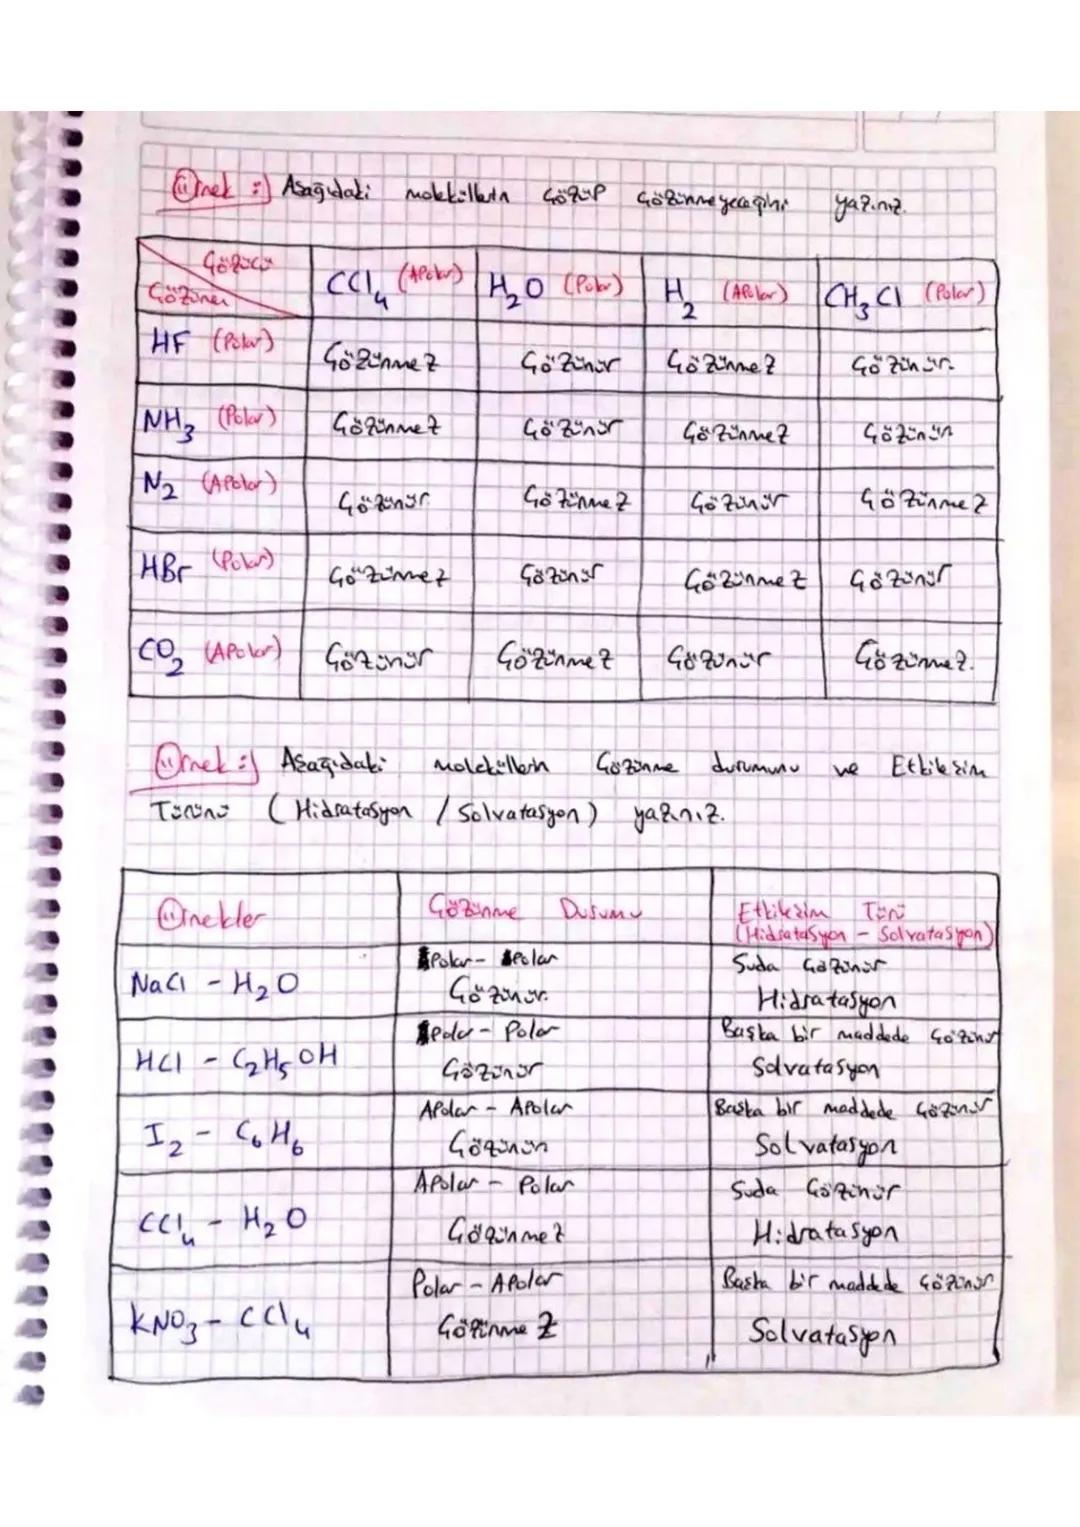 Örnek :) Aşağıdaki moleküllerin çözüp çözünmeyeceğini yazınız.
Çözücü
Çözünen
CCl₄ (Apolar) H₂O (Polar) H₂ (Apolar) CH₃Cl (Polar)
HF (Polar) Çözünmez Çözünür Çözünmez Çözünür.
NH₃ (Polar) Çözünmez Çözünür Çözünmez Çözünür
N₂ (Apolar) Çözünür Çözünmez Çözünür Çözünmez
HBr (Polar) Çözünmez Çözünür Çözünmez Çözünür
CO₂ (Apolar) Çözünür Çözünmez Çözünür Çözünmez.
Örnek :) Aşağıdaki moleküllerin Çözünme durumunu ve Etkileşim
Türünü (Hidratasyon / Solvatasyon) yazınız.
Örnekler Çözünme Durumu Etkileşim Türü
(Hidratasyon - Solvatasyon)
NaCl - H₂O Polar - Polar Suda Çözünür
Çözünür. Hidratasyon
HCl - C₂H₅OH Polar - Polar Başka bir maddede Çözünür
Çözünür Solvatasyon
I₂ - C₆H₆ Apolar - Apolar Başka bir maddede Çözünür
Çözünür Solvatasyon
CCl₄ - H₂O Apolar - Polar Suda Çözünür
Çözünmez Hidratasyon
KNO₃ - CCl₄ Polar - Apolar Başka bir maddede Çözünür
Çözünmez Solvatasyon